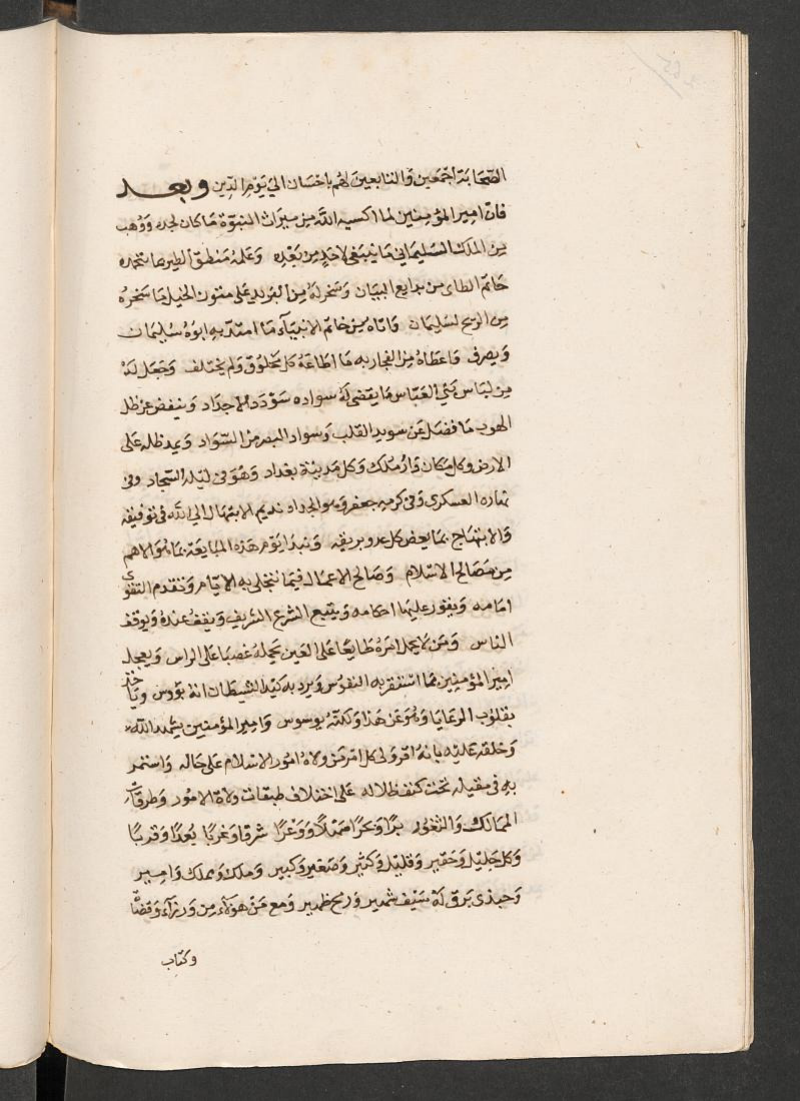 الصّحابة اجمعين والتابعين لهم باحسان الي يوم الدين وبعد
فان امير المؤمنين لما اكسبه الله من ميراث النبوة ما كان لجده ووهب
من الملك السليماني ما ينبغي لاحد من بعده وعلمه منطق الطير بما تتحمله
حمائم البطائق من بدايع البيان وسخر له من البريد علي متون الخيل ما سخره
من الريح لسليمان واتاه من خاتم الانبيآء ما امتد به ابوه سليمان
ويصرف واعطاه من الفخار به ما اطاعه كل مخلوق ولم يختلف وجعل له
من لباس بني العباس ما يقضي له سواده سؤدد الاجداد وينفض عن ظل
الهدب ما فضل عن سويد القلب وسواد البصر من السواد ويمد ظله علي
الارض وكل مكان دار ملك وكل مدينة بغداد وهو في ليله السجاد وفي
نهاره العسكري وفي كرمه جعفر وهو الجواد نديم الابتهال الي الله في توفيقه
والابتهاج بما يغص كل عدو بريقه ونبدا يوم هذه المبايعة بما هو الاهم
من مصالح الاسلام وصالح الاعمال فيما تتحلي به الايام ونقدم التقوي
امامه ويقرر عليها احكامه ويتبع الشرع الشريف ويقف عنده ويوقف
الناس ومن لا يحمل امره طايعا علي العين يحمله غصبا علي الراس ويعجل
امير المؤمنين بما استقر به النفوس ويرد به كيد الشيطان انه يؤوس وياخذ
بقلوب الرعايا وهو غني عن هذا ولكنه يوسوس وامير المؤمنين يشهد الله
وخلقه عليه بانه اقر ولي كل امر من ولاة امور الاسلام علي حاله واستمر
به في مقيله تحت كنف ظلاله علي اختلاف طبقات ولاة الامور وطرقات
الممالك والثغور برا وبحرا سهلا ووعرا شرقا وغربا بعدا وقربا
وكل جليل وحقير وقليل وكثير وصغير وكبير وملك ومملوك وامير
وجندي يبرق له سيف شهير ورمح ظهير ومع من هؤلاء من وزرآء وقضاة
وكتاب